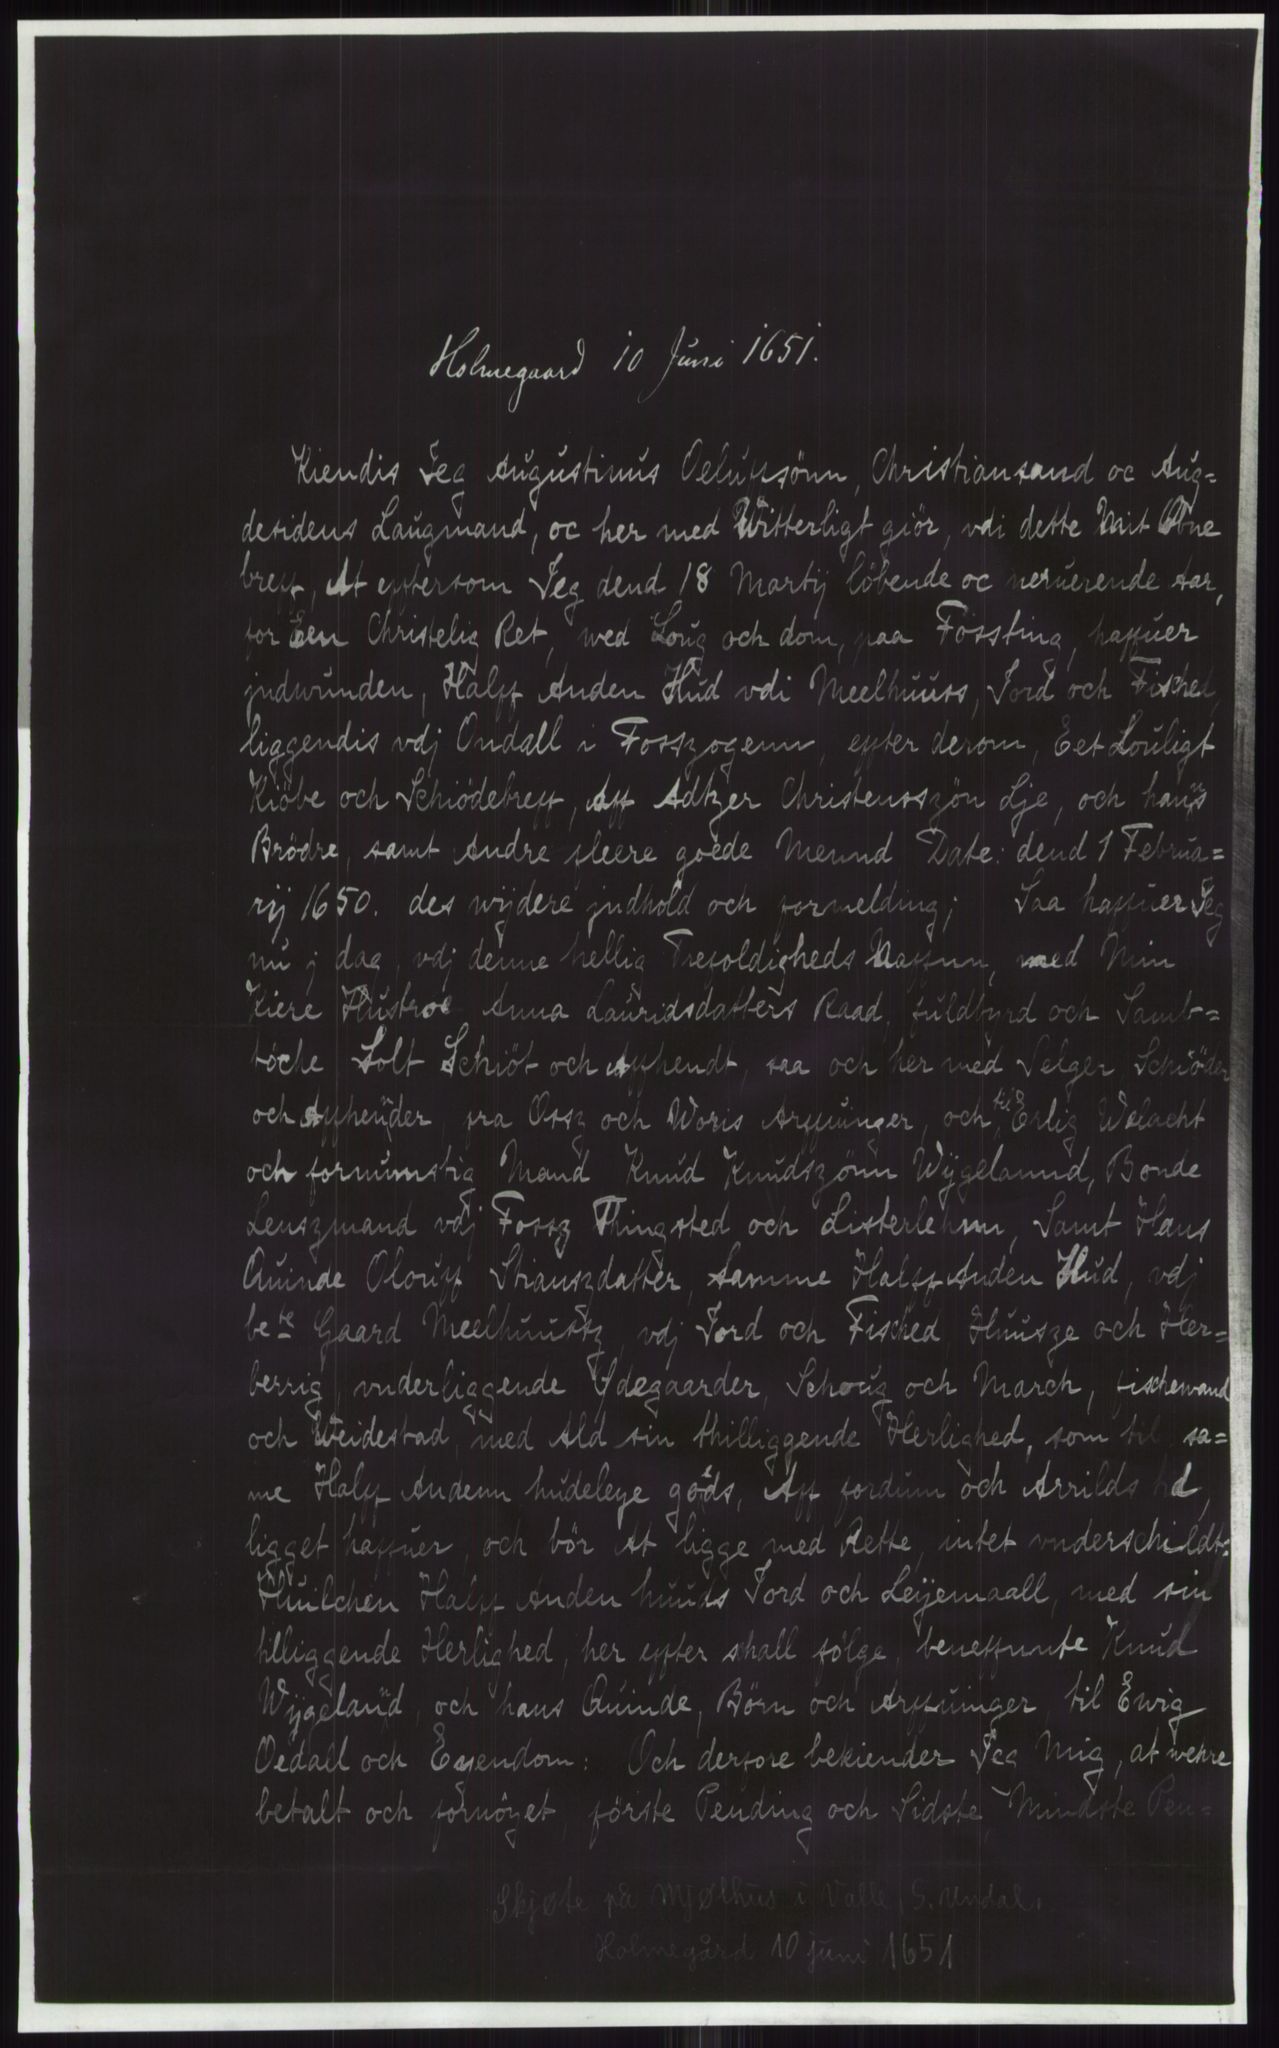 Holmegaard 10 Juni 1651.
Kiendis Jeg Augustinus Oeluffsönn, Christiansand oc Aug=
desidens Laugmand, oc her med Witterligt giör, vdi dette Mit Obne
breff, At efftersom Jeg dend 18 Martij löbende oc neruerende aar,
for Een Christelig Ret, wed Loug och dom, paa Fossting, haffuer
jndwunden, Halff Anden Hud vdi Meelhuuss, Jord och Fisched,
liggendis vdj Ondall i Fosszogenn, effter derom, Eet Louligt
Kiöbe och Schiödebreff, Aff Adtzer Christensszön Lje, och hans
Brödre, samt Andre fleere goede Mennd Date: dend 1 Februa=
rij 1650. des wijdere jndhold och formelding; Saa haffuer Jeg
nu j dag, vdj denne hellig Trefoldigheds Naffnn, med Min
Kiere Hustroe Anna Lauridsdatters Raad, fuldbyrd och Samb=
töche Solt Schiöt och Affhendt, saa och her med Selger, Schiöder
och Affhender, fra Ossz och Woris Arffuinger, och til Erlig Welacht
och fornumstig Mand Knud Knudszönn Wÿgelannd, Bonde
Lenszmand vdj Fossz Thingsted och Listerlehnn, Samt Hans
Quinde Olouff Stianszdatter, samme Halff Anden Hud, vdj
bete Gaard Meelhuussz, vdj Jord och Fisched, Huusze och Her=
berrig, vnderliggende Ödegaarder, Schoug och March, fischewand
och Weidestad, med Ald sin thilliggende Herlighed, som til sa=
me Halff Andenn hudeleye gods, Aff fordum och Arrilds tid,
ligget haffuer, och bör At ligge med Rette, intet vnderschildt:
Huilchen Halff Anden huuds Jord och Leijemaall, med sin
tilliggende Herlighed, her effter skall følge, beneffnnte Knud
Wÿgeland, och hans Quinde, Börn och Arffuinger, til Ewig
Oedall och Eyendom: Och derfore bekiender Jeg Mig, at wehre
betalt och fornöyet, förste Pending och Sidste, Mindste Pen=
Skjøte på Mjølhus i Valle, S. Undal.
Holmegård 10 juni 1651